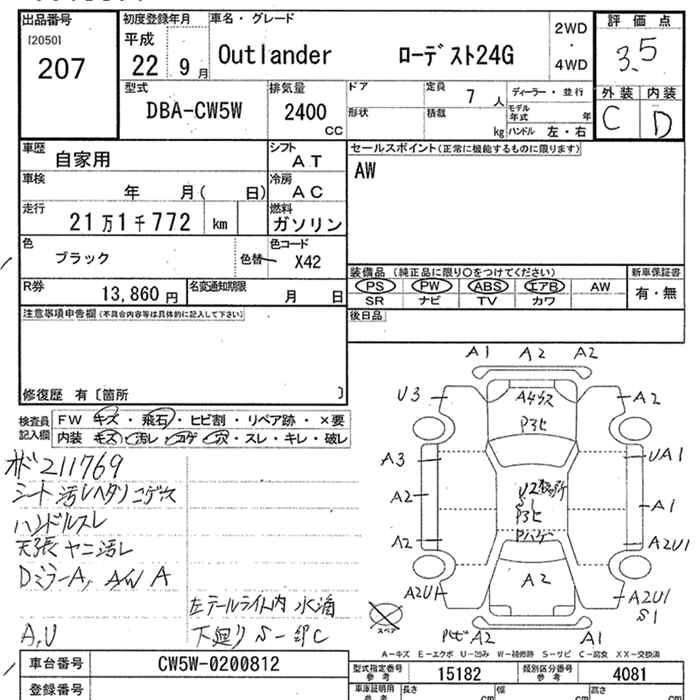 出品番号
[2050]
207
初度登録年月
平成
22年 9月
車名・グレード
Outlander ローデスト24G
2WD
・
4WD
評価点
3.5
外装 内装
C D
型式
DBA-CW5W
排気量
2400
CC
ドア
形状
定員 7 人
積載 kg
ディーラー・並行
モデル年式 年
ハンドル 左・右
車歴
自家用
シフト
AT
車検
年 月( 日)
冷房
AC
走行
21万1千772 km
燃料
ガソリン
色
ブラック
色替
色コード
X42
R券
13,860円
名変通知期限
月 日
セールスポイント(正常に機能するものに限ります)
AW
装備品 (純正品に限り○をつけてください)
新車保証書
PS PW ABS エアB AW
有・無
SR ナビ TV カワ
後日品
注意事項申告欄(不具合内容等は具体的に記入して下さい)
修復歴 有〔箇所 〕
検査員
記入欄
FW キズ・飛石・ヒビ割・リペア跡・×要
内装 キズ・汚レ・コゲ・穴・スレ・キレ・破レ
オド211769
シート汚レヘタリコゲ穴
ハンドルスレ
天張ヤニ汚レ
DミラーA, AW A
左テールライト内 水滴
A,U
下廻りS-
A1 A2 A2
U3
A2
A3
UA1
A2
A1
A2
A2U1
A2U1
A2U1
S1
A2
スペア
A2
A1
A-キズ E-エクボ U-凹み W-補修跡 S-サビ C-腐食 XX-交換済
車台番号
CW5W-0200812
登録番号
型式指定番号
参考
15182
類別区分番号
参考
4081
車庫証明用
参考
長さ cm
幅 cm
高さ cm